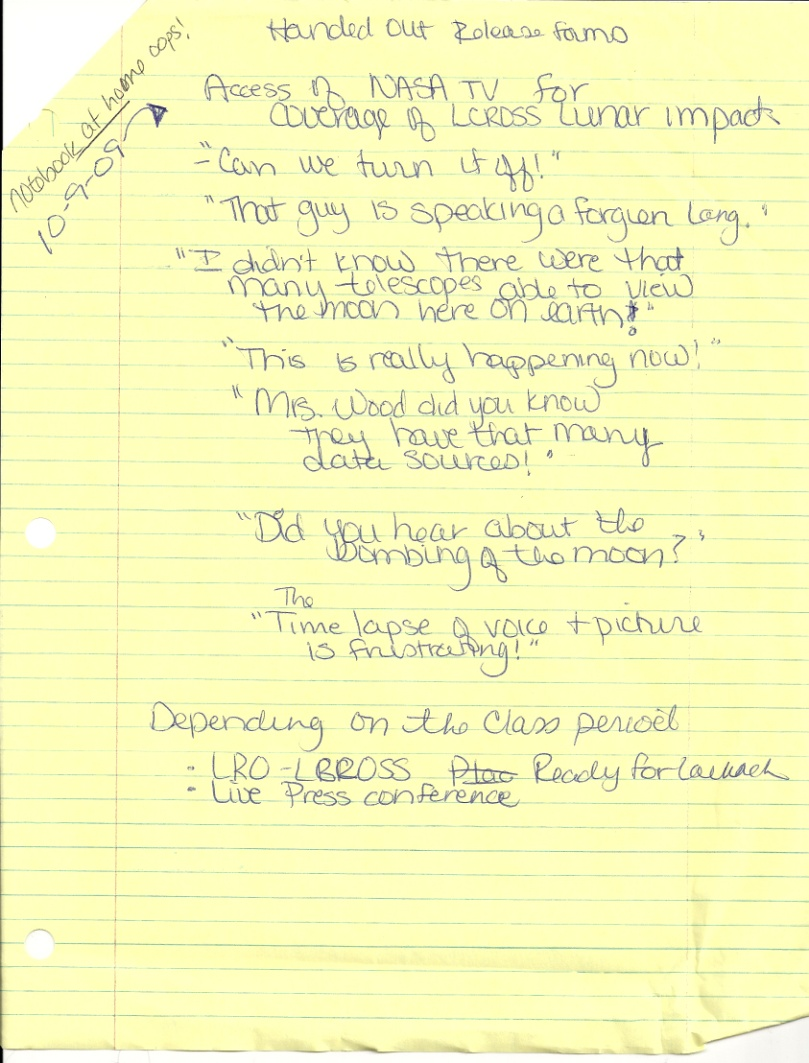 notebook at home oops!
10-9-09
Handed Out Release forms
Access of NASA TV for
coverage of LCROSS Lunar impact
- "Can we turn it off!"
"That guy is speaking a forgien lang."
"I didn't know there were that
many telescopes able to view
the moon here on earth!"
"This is really happening now!"
"Mrs. Wood did you know
they have that many
data sources!"
"Did you hear about the
bombing of the moon?"
The
"Time lapse of voice + picture
is frustrating!"
Depending on the Class period
- LRO - LCROSS Ready for Launch
- Live Press conference